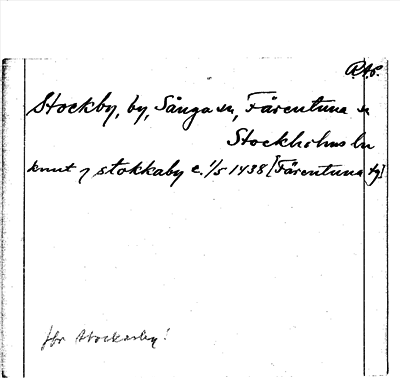 RAp.
Stockby, by, Sånga sn, Färentuna sn
Stockholms ln
knut j stokkaby c. 1/5 1438 [Färentuna tg]
jfr Stockarby!